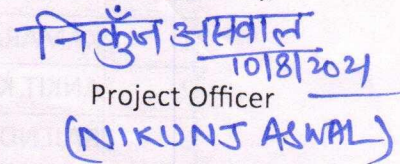 निकुँज असवाल
10/8/2021
Project Officer
(NIKUNJ ASWAL)